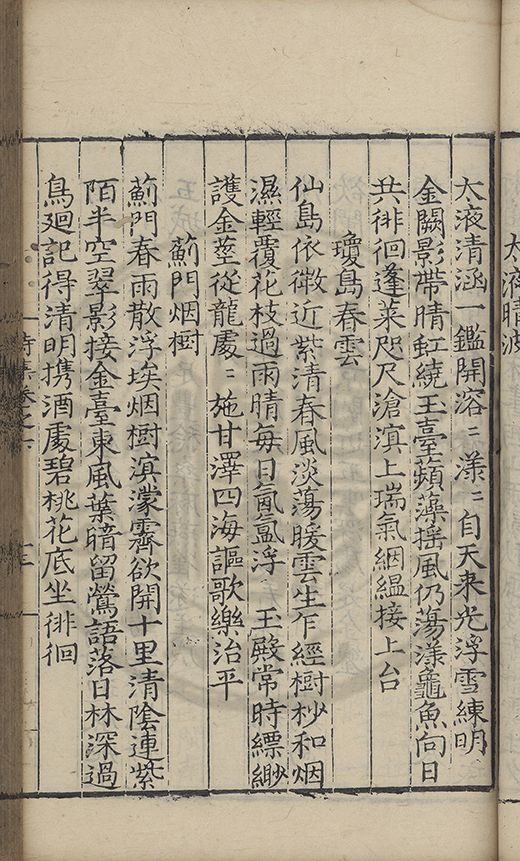 太液晴波
太液清涵一鑑開溶〻漾〻自天来光浮雪練明
金闕影帶晴虹繞玉臺蘋藻揺風仍蕩漾龜魚向日
共徘徊蓬萊咫尺滄溟上瑞氣絪縕接上台
瓊島春雲
仙島依微近紫清春風淡蕩暖雲生乍經樹杪和烟
濕輕覆花枝過雨晴每日氤氲浮玉殿常時縹緲
護金莖從龍處〻施甘澤四海謳歌樂治平
薊門烟樹
薊門春雨散浮埃烟樹溟濛霽欲開十里清隂連紫
陌半空翠影接金臺東風葉暗留鶯語落日林深過
鳥廻記得清明携酒處碧桃花底坐徘徊